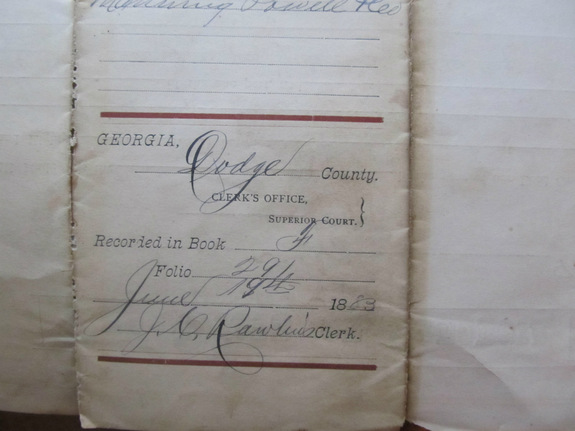 Powell
GEORGIA,
Dodge County.
CLERK'S OFFICE,
SUPERIOR COURT.}
Recorded in Book F
Folio 291
June 19th 1883
J. C. Rawlins Clerk.